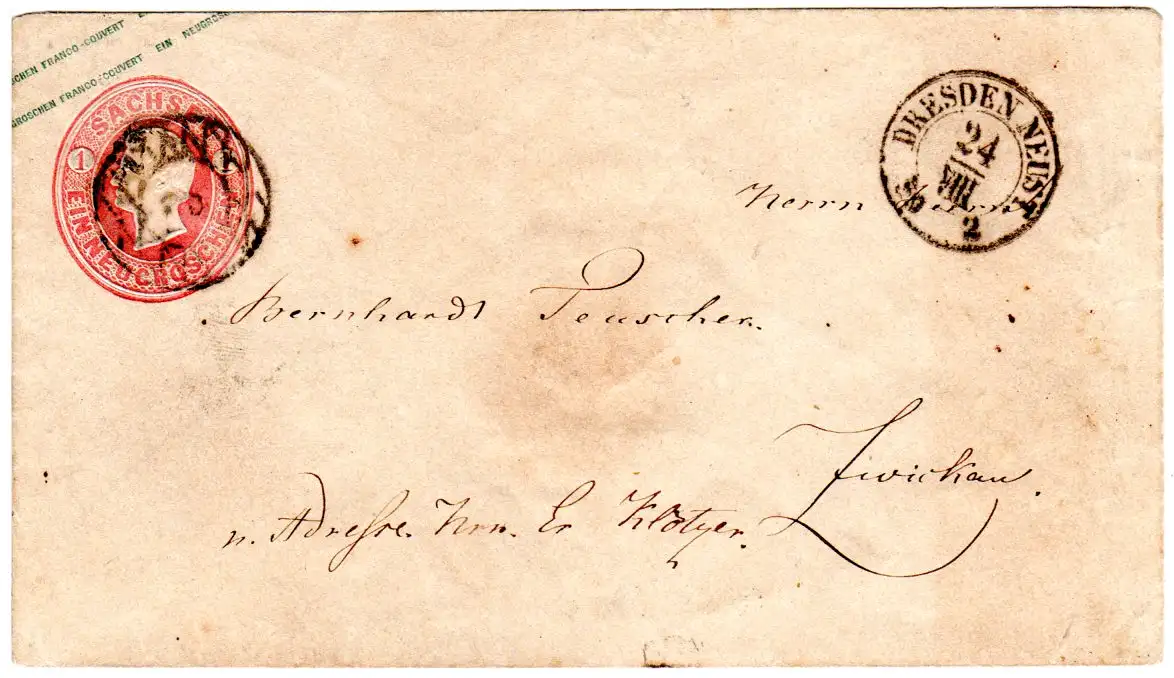 SCHEN FRANCO-COUVERT EIN
GROSCHEN FRANCO-COUVERT EIN NEUGROSCH
SACHSEN
1 1
EIN NEUGROSCHEN
DRESDEN NEUST
24
VIII
2
Herrn Herrn
Bernhardt Teuscher.
Zwickau.
n. Adresse. Hrn. Er Klötzer.